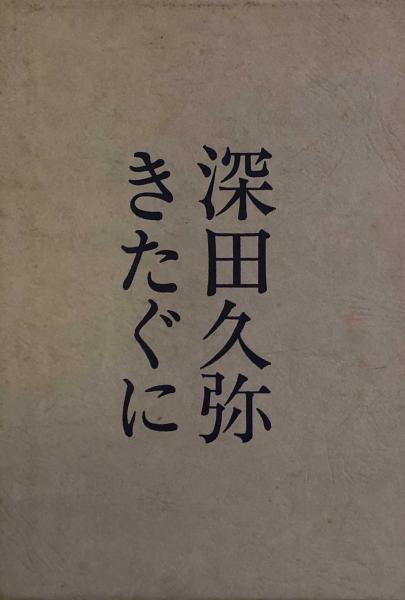 深田久弥
きたぐに